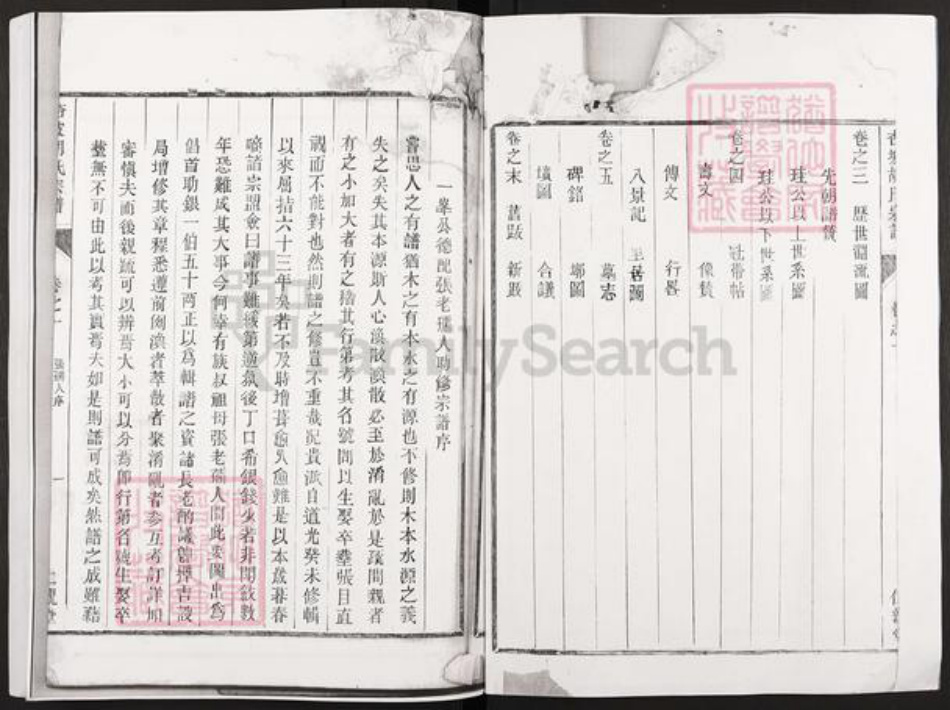 卷之三 歷世淵流圖
先朝誥贊
珪公以上世系圖
珪公以下世系圖
卷之四 冠帶帖
壽文 像贊
傳文 行畧
八景記 里居圖
卷之五 墓志
碑銘 塚圖
墳圖 合議
卷之末 舊跋 新跋
一峯公德配張老孺人助修宗譜序
嘗思人之有譜猶木之有本水之有源也不修則木本水源之義
失之矣失其本源斯人心渙散渙散必至於淆亂於是疏間親者
有之小加大者有之揞其行第考其名號問以生娶卒塟張目直
視而不能對也然則譜之修豈不重哉況貴派自道光癸未修輯
以來屈指六十三年矣若不及時增葺愈久愈難是以本歲暮春
啓諸宗盟僉曰譜事難緩第遭氛後丁口希銀錢少若非間數
年恐難成其大事今何幸有族叔祖母張老孺人聞此要圖出爲
倡首助銀一伯五十兩正以爲輯譜之資諸長老酌議曾擇吉設
局增修其章程悉遵前例渙者萃散者聚淆亂者參互考訂詳加
審愼夫而後親疏可以辨焉大小可以分焉即行第名號生娶卒
塟無不可由此以考其實焉夫如是則譜可成矣然譜之成雖藉
卷之一
張孺人序
一
FamilySearch